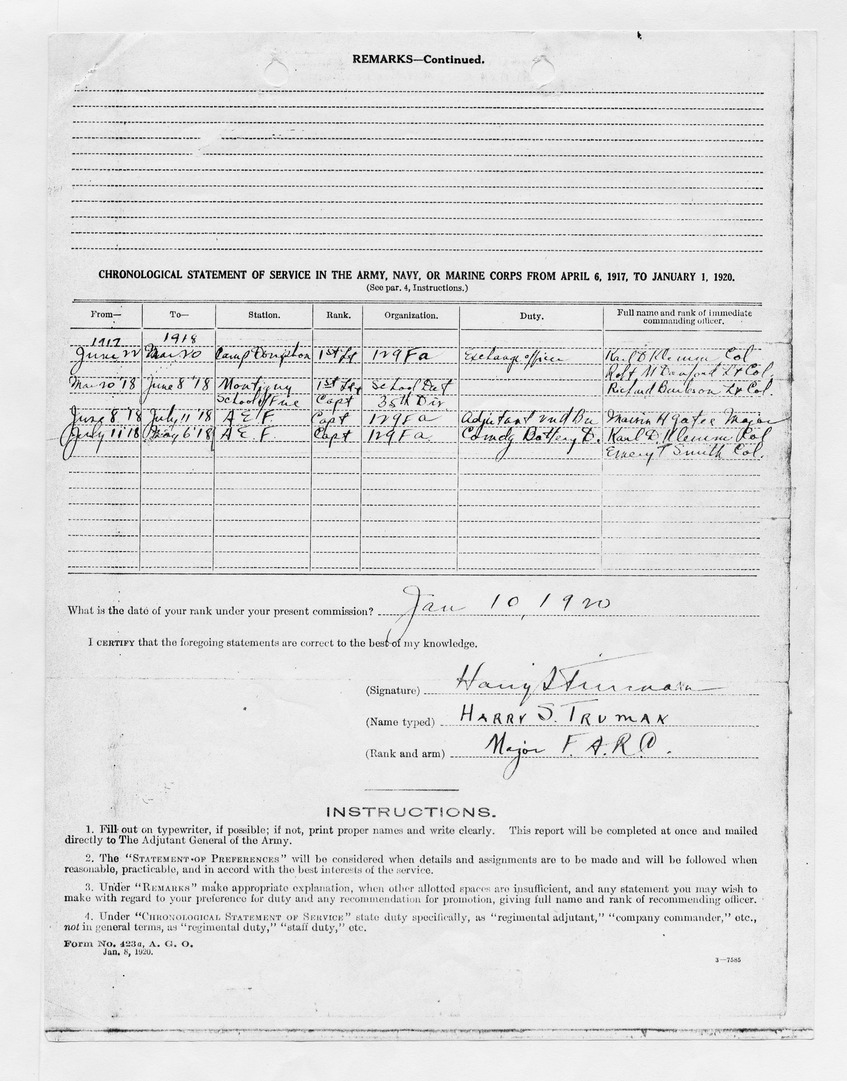 REMARKS—Continued.
CHRONOLOGICAL STATEMENT OF SERVICE IN THE ARMY, NAVY, OR MARINE CORPS FROM APRIL 6, 1917, TO JANUARY 1, 1920.
(See par. 4, Instructions.)
From— To— Station. Rank. Organization. Duty. Full name and rank of immediate commanding officer.
1917 1918
June 22 Mar 20 Camp Doniphan 1st Lt 129 Fa Exchange officer Karl D Klemm Col
Robt M Danford Lt Col
Mar 20 '18 June 8 '18 Montigny 1st Lt School Det Richard Burleson Lt Col
School of Fire Capt 35th Div
June 8 '18 July 11 '18 A E F Capt 129 Fa Adjutant 2nd Bn Marvin H Gates Major
July 11 '18 May 6 '18 A. E. F. Capt 129 Fa Comdg Battery D. Karl D. Klemm Col
Emery T Smith Col.
What is the date of your rank under your present commission? Jan 10, 1920
I CERTIFY that the foregoing statements are correct to the best of my knowledge.
(Signature) Harry S Truman
(Name typed) HARRY S. TRUMAN
(Rank and arm) Major F. A. R. C.
INSTRUCTIONS.
1. Fill out on typewriter, if possible; if not, print proper names and write clearly. This report will be completed at once and mailed
directly to The Adjutant General of the Army.
2. The “STATEMENT OF PREFERENCES” will be considered when details and assignments are to be made and will be followed when
reasonable, practicable, and in accord with the best interests of the service.
3. Under “REMARKS” make appropriate explanation, when other allotted spaces are insufficient, and any statement you may wish to
make with regard to your preference for duty and any recommendation for promotion, giving full name and rank of recommending officer.
4. Under “CHRONOLOGICAL STATEMENT OF SERVICE” state duty specifically, as “regimental adjutant,” “company commander,” etc.,
not in general terms, as “regimental duty,” “staff duty,” etc.
Form No. 423a, A. G. O.
Jan. 8, 1920.
3—7585